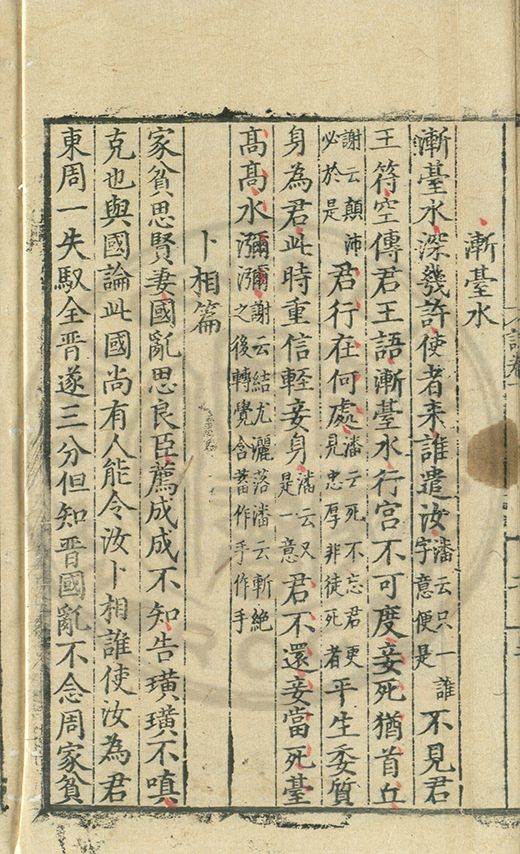 漸臺水
漸臺水深幾許使者来誰遣汝潘云只一誰字意便是不見君
王符空傳君王語漸臺水行宮不可度妾死猶首丘
謝云顛沛必於是君行在何處潘云死不忘君更見忠厚非徒死者平生委質
身為君此時重信輕妾身潘云又是一意君不還妾當死臺
髙髙水瀰瀰謝云結尤灑落潘云斬絶之後轉覺含蓄作手作手
卜相篇
家貧思賢妻國亂思良臣薦成成不知告璜璜不嗔
克也與國論此國尚有人能令汝卜相誰使汝為君
東周一失馭全晋遂三分但知晋國亂不念周家貧